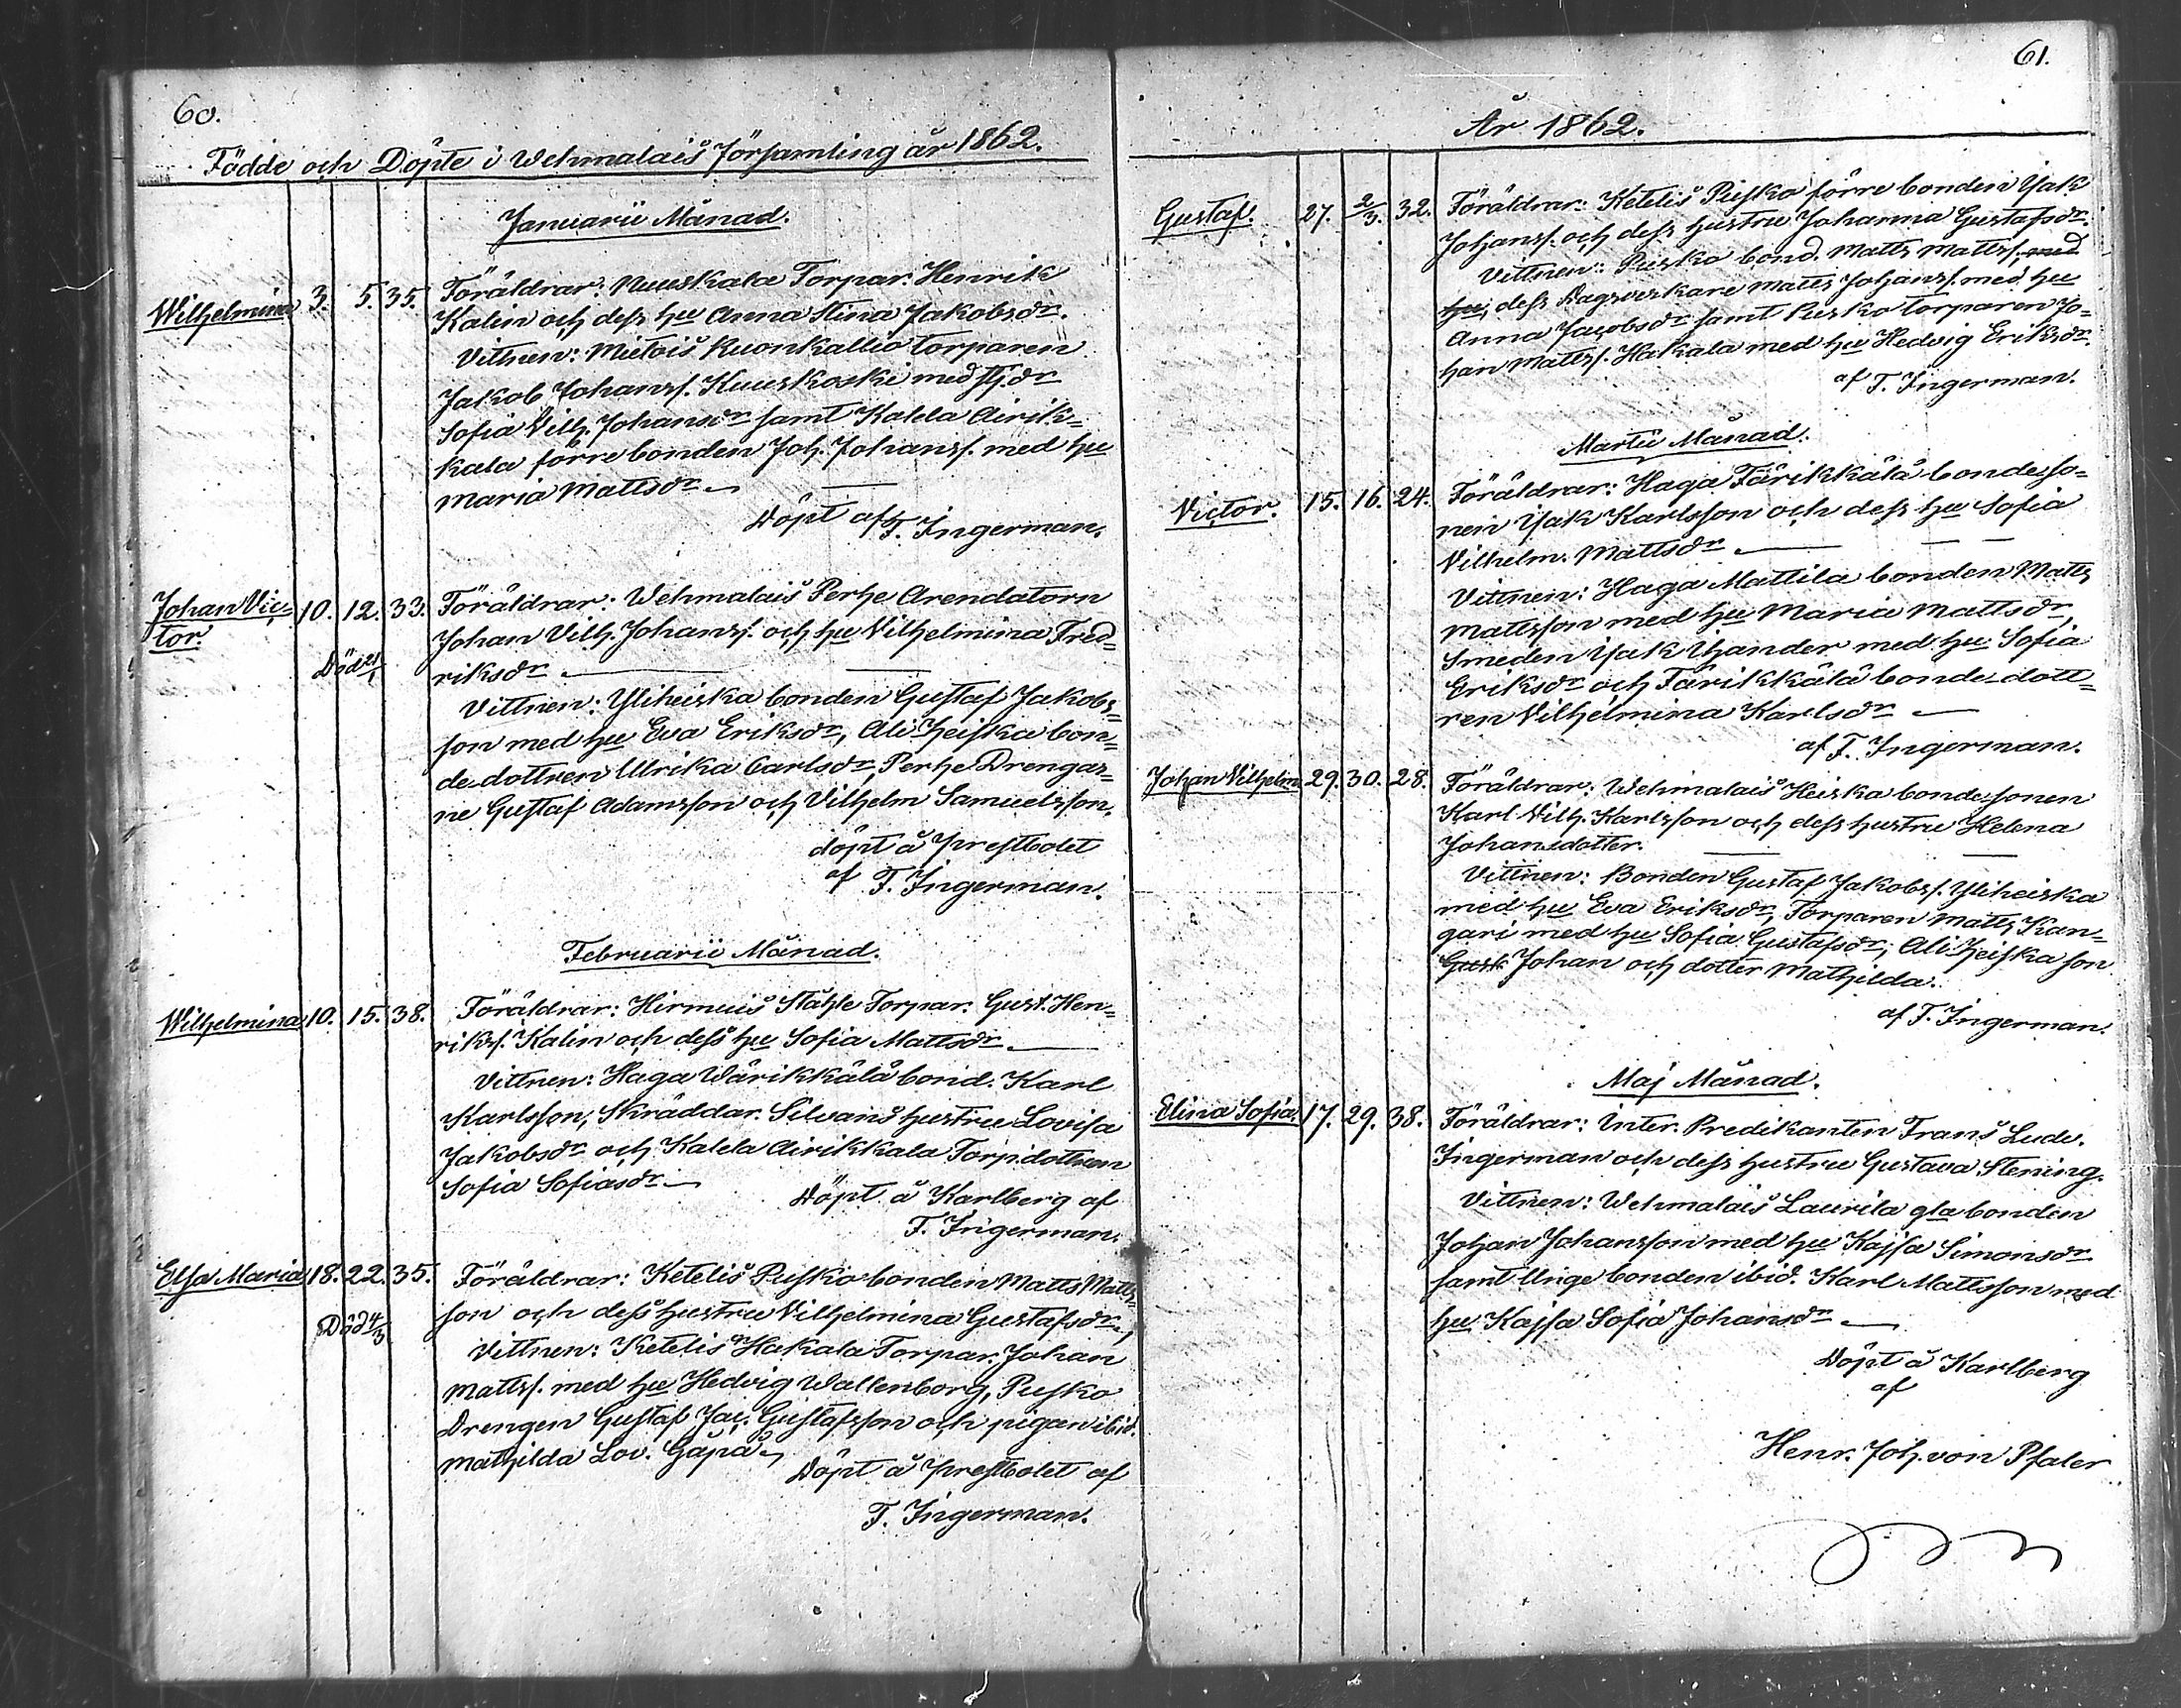 60.
Födde och Döpte i Wehmalais församling år 1862.
Januarii Månad.
Wilhelmina 3. 5. 35. Föräldrar: Nuuskala Torpar. Henrik
Kalin och dess hu Anna Stina Jakobsdr.
Vittnen: Mietois Kuonkallio torparen
Jakob Johanss. Kuuskoski med
Sofia Vilh. Johansdr samt Kalela Airik=
kala förre bonden Joh. Johanss. med hu
Maria Mattsdr
Döpt af F. Ingerman.
Johan Vic= 10. 12. 33. Föräldrar: Wehmalais Perhe Arendatorn
tor. Johan Vilh. Johanss. och hu Vilhelmina Fred=
Död 21/1 riksdr
Vittnen: Yliheiska bonden Gustaf Jakobs=
son med hu Eva Eriksdr, Ali Heiska bon=
de dottren Ulrika Carlsdr, Perhe Drengar=
ne Gustaf Adamsson och Vilhelm Samuelsson.
döpt å Prestbolet
af F. Ingerman.
Februarii Månad.
Wilhelmina 10. 15. 38. Föräldrar: Hirmuis Ståhle Torpar. Gust. Hen=
rikss. Kalin och dess hu Sofia Mattsdr
Vittnen: Haga Wärikkälä bond. Karl
Karlsson, Skräddar. Silvans hustru Lovisa
Jakobsdr och Kalela Airikkala Torp.dottren
Sofia Sofiasdr
Döpt å Karlberg af
F. Ingerman.
Elsa Maria 18. 22. 35. Föräldrar: Ketelis Pusko bonden Matts Matts=
son och dess hustru Vilhelmina Gustafsdr,
Död 4/3 Vittnen: Ketelis Hakala Torpar. Johan
Mattss. med hu Hedvig Wallenborg, Pusko
Drengen Gustaf Jac. Gustafsson och pigan ibid.
Mathilda Lov. Gåpå
Döpt å Prestbolet af
F. Ingerman.
61.
År 1862.
Gustaf. 27. 2/3. 32. Föräldrar: Ketelis Pusko förre bonden Isak
Johanss. och dess hustru Johanna Gustafsdr.
Vittnen: Pusko bond. Matts Mattss. med
hu, dess Dagsverkare Matts Johanss. med hu
Anna Jacobsdr samt Pusko torparen Jo=
han Mattss. Hakala med hu Hedvig Eriksdr.
af F. Ingerman.
Martii Månad.
Victor. 15. 16. 24. Föräldrar: Haga Färikkälä bondeso=
nen Isak Karlsson och dess hu Sofia
Vilhelm. Mattsdr
Vittnen: Haga Mattila bonden Matts
Mattsson med hu Maria Mattsdr,
Smeden Isak Isander med hu Sofia
Eriksdr och Färikkälä bonde-dott=
ren Vilhelmina Karlsdr
af F. Ingerman.
Johan Vilhelm 29. 30. 28. Föräldrar: Wehmalais Heiska bonde-sonen
Karl Vilh. Karlsson och dess hustru Helena
Johansdotter.
Vittnen: Bonden Gustaf Jakobss. Yliheiska
med hu Eva Eriksdr, Torparen Matts Kan=
gari med hu Sofia Gustafsdr, Ali Heiska son
Gust Johan och dotter Mathilda.
af F. Ingerman.
Maj Månad.
Elina Sofia. 17. 29. 38. Föräldrar: Inter. Predikanten Frans Ludv.
Ingerman och dess hustru Gustava Stening.
Vittnen: Wehmalais Laurila gla bonden
Johan Johansson med hu Kajsa Simonsdr
samt Unge bonden ibid. Karl Mattsson med
hu Kajsa Sofia Johansdr
Döpt å Karlberg
af
Henr. Joh. von Pfaler